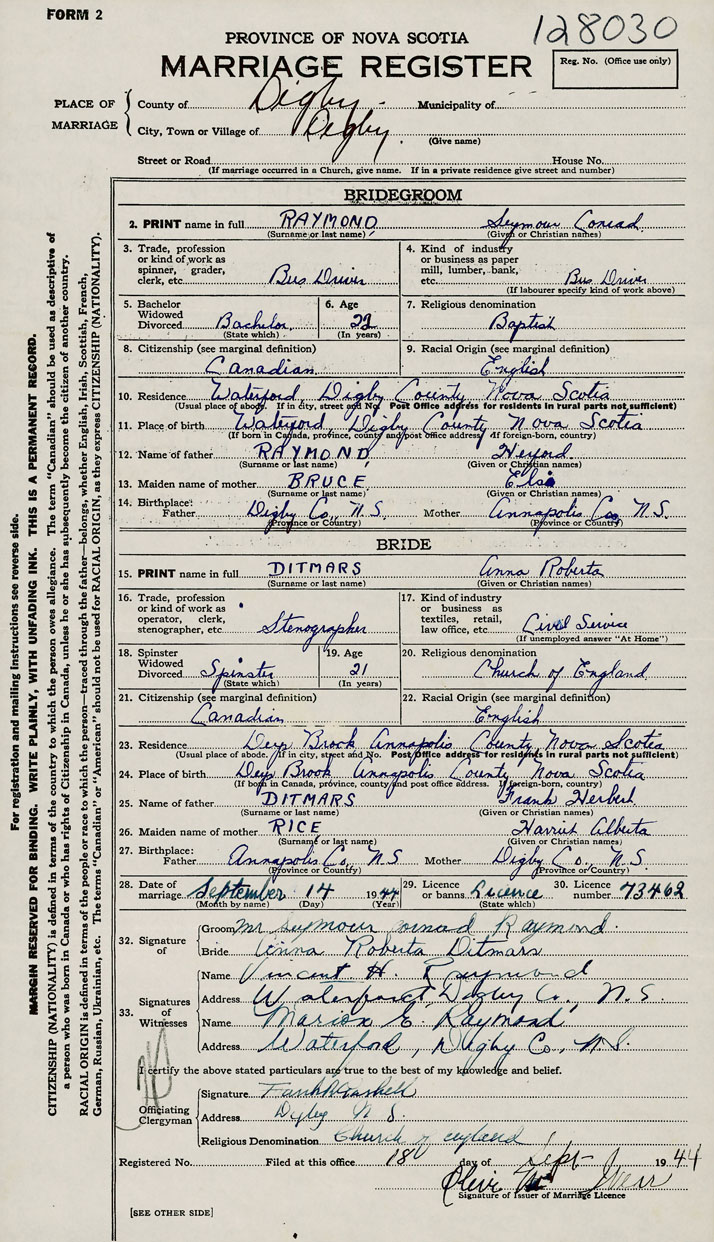 FORM 2
128030
PROVINCE OF NOVA SCOTIA
MARRIAGE REGISTER
Reg. No. (Office use only)
PLACE OF MARRIAGE
County of Digby Municipality of
City, Town or Village of Digby
(Give name)
Street or Road House No.
(If marriage occurred in a Church, give name. If in a private residence give street and number)
BRIDEGROOM
2. PRINT name in full RAYMOND Seymour Conrad
(Surname or last name) (Given or Christian names)
3. Trade, profession or kind of work as spinner, grader, clerk, etc. Bus Driver
4. Kind of industry or business as paper mill, lumber, bank, etc. Bus Driver
(If labourer specify kind of work above)
5. Bachelor Widowed Divorced Bachelor
(State which)
6. Age 22
(In years)
7. Religious denomination Baptist
8. Citizenship (see marginal definition) Canadian
9. Racial Origin (see marginal definition) English
10. Residence Waterford Digby County Nova Scotia
(Usual place of abode. If in city, street and No. Post Office address for residents in rural parts not sufficient)
11. Place of birth Waterford Digby County Nova Scotia
(If born in Canada, province, county and post office address. If foreign-born, country)
12. Name of father RAYMOND
(Surname or last name) (Given or Christian names)
13. Maiden name of mother BRUCE Elsie
(Surname or last name) (Given or Christian names)
14. Birthplace: Father Digby Co., N.S. Mother Annapolis Co., N.S.
(Province or Country) (Province or Country)
BRIDE
15. PRINT name in full DITMARS Anna Roberta
(Surname or last name) (Given or Christian names)
16. Trade, profession or kind of work as operator, clerk, stenographer, etc. Stenographer
17. Kind of industry or business as textiles, retail, law office, etc. Civil Service
(If unemployed answer "At Home")
18. Spinster Widowed Divorced Spinster
(State which)
19. Age 21
(In years)
20. Religious denomination Church of England
21. Citizenship (see marginal definition) Canadian
22. Racial Origin (see marginal definition) English
23. Residence Deep Brook Annapolis County Nova Scotia
(Usual place of abode. If in city, street and No. Post Office address for residents in rural parts not sufficient)
24. Place of birth Deep Brook Annapolis County Nova Scotia
(If born in Canada, province, county and post office address. If foreign-born, country)
25. Name of father DITMARS Frank Herbert
(Surname or last name) (Given or Christian names)
26. Maiden name of mother RICE Harriet Alberta
(Surname or last name) (Given or Christian names)
27. Birthplace: Father Annapolis Co., N.S Mother Digby Co., N.S.
(Province or Country) (Province or Country)
28. Date of marriage September 14 1944
(Month by name) (Day) (Year)
29. Licence or banns Licence
(State which)
30. Licence number 73462
32. Signature of
Groom Mr Seymour Conrad Raymond
Bride Anna Roberta Ditmars
33. Signatures of Witnesses
Name Vincent H. Raymond
Address Waterford, Digby Co., N.S.
Name Marion E. Raymond
Address Waterford, Digby Co., N.S.
I certify the above stated particulars are true to the best of my knowledge and belief.
Officiating Clergyman
Signature
Address Digby N.S.
Religious Denomination Church of England
Registered No. Filed at this office 18 day of Sept 1944
Signature of Issuer of Marriage Licence
[SEE OTHER SIDE]
For registration and mailing instructions see reverse side.
MARGIN RESERVED FOR BINDING. WRITE PLAINLY, WITH UNFADING INK. THIS IS A PERMANENT RECORD.
CITIZENSHIP (NATIONALITY) is defined in terms of the country to which the person owes allegiance. The term "Canadian" should be used as descriptive of
a person who was born in Canada or who has rights of Citizenship in Canada, unless he or she has subsequently become the citizen of another country.
RACIAL ORIGIN is defined in terms of the people or race to which the person—traced through the father—belongs, whether English, Irish, Scottish, French,
German, Russian, Ukrainian, etc. The terms "Canadian" or "American" should not be used for RACIAL ORIGIN, as they express CITIZENSHIP (NATIONALITY).